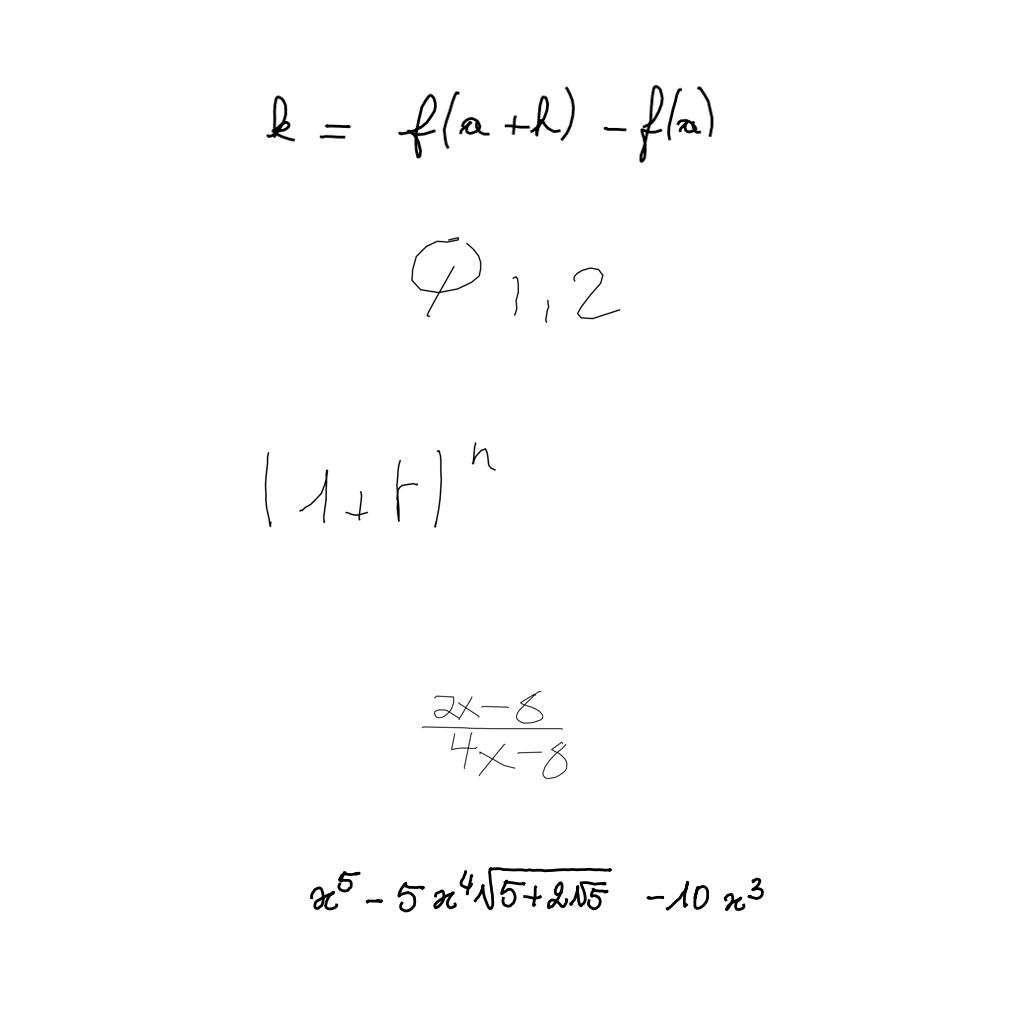 k = f(a+h) - f(a)
φ_{1,2}
(1+r)^n
\frac{2x-8}{4x-8}
x^5 - 5x^4\sqrt{5+2\sqrt{5}} - 10x^3